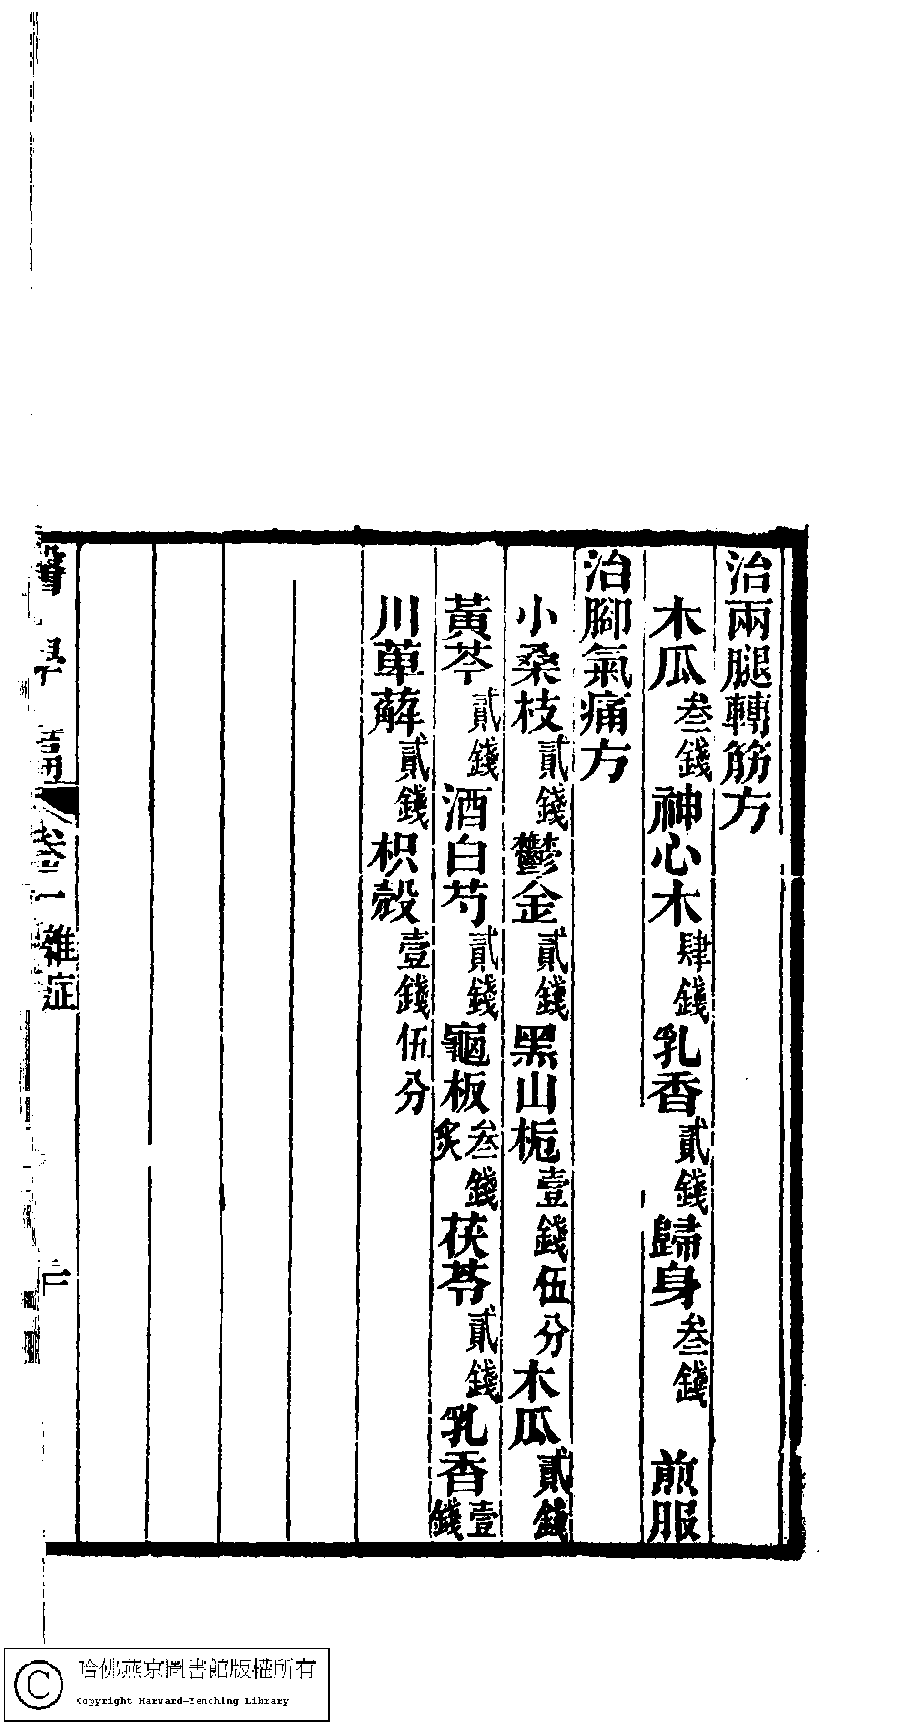 治兩腿轉筋方
木瓜叁錢神心木肆錢乳香貳錢歸身叁錢 煎服
治腳氣痛方
小桑枝貳錢鬱金貳錢黑山梔壹錢伍分木瓜貳錢
黃芩貳錢酒白芍貳錢龜板炙叁錢茯苓貳錢乳香壹錢
川萆薢貳錢枳殼壹錢伍分
卷一 雜症
哈佛燕京圖書館版權所有
Copyright Harvard-Yenching Library